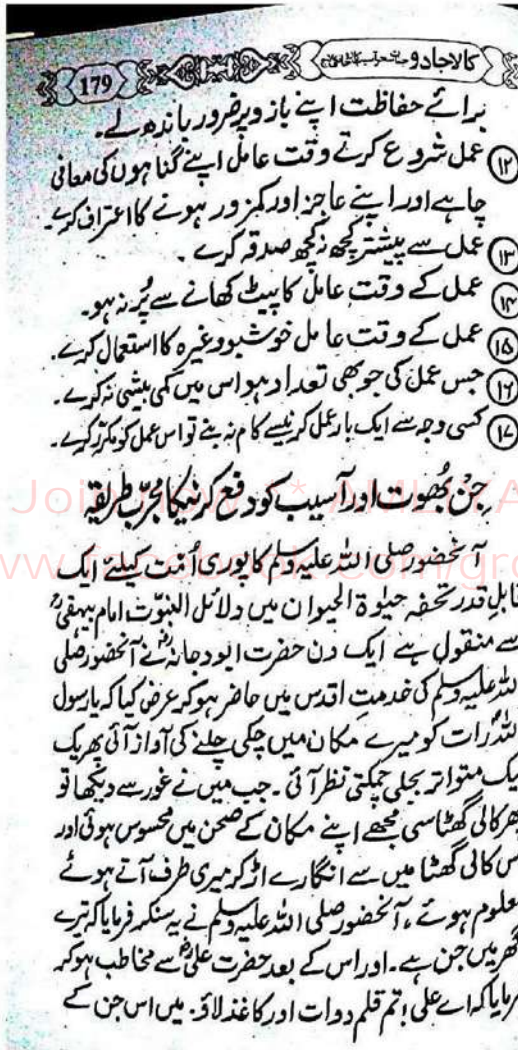 کالا جادو
179
برائے حفاظت اپنے بازو پر ضرور باندھ لے۔
۱۲ عمل شروع کرتے وقت عامل اپنے گناہوں کی معافی
چاہے اور اپنے عاجز اور کمزور ہونے کا اعتراف کرے۔
۱۳ عمل سے پیشتر کچھ نہ کچھ صدقہ کرے۔
۱۴ عمل کے وقت عامل کا پیٹ کھانے سے پُر نہ ہو۔
۱۵ عمل کے وقت عامل خوشبو وغیرہ کا استعمال کرے۔
۱۶ جس عمل کی جو بھی تعداد ہو اس میں کمی بیشی نہ کرے۔
۱۷ کسی وجہ سے ایک بار عمل کرنیسے کام نہ بنے تو اس عمل کو مکرر کرے۔
جِنّ بُھوت اور آسیب کو دفع کرنیکا مجرّب طریقہ
آنحضور صلی اللہ علیہ وسلم کا پوری اُمّت کیلئے ایک
قابلِ قدر تحفہ حیٰوة الحیوان میں دلائل النبوّت امام بیہقیؒ
سے منقول ہے ایک دن حضرت ابودجانہؓ نے آنحضور صلی
اللہ علیہ وسلم کی خدمتِ اقدس میں حاضر ہو کر عرض کیا کہ یا رسول
اللہؐ رات کو میرے مکان میں چکی چلنے کی آواز آئی پھر یک
یک متواتر بجلی چمکتی نظر آئی۔ جب میں نے غور سے دیکھا تو
پھر کالی گھٹا سی مجھے اپنے مکان کے صحن میں محسوس ہوئی اور
اس کالی گھٹا میں سے انگارے اڑ کر میری طرف آتے ہوئے
معلوم ہوئے، آنحضور صلی اللہ علیہ وسلم نے یہ سنکر فرمایا کہ تیرے
گھر میں جن ہے۔ اور اس کے بعد حضرت علیؓ سے مخاطب ہو کر
فرمایا کہ اے علی! تم قلم دوات اور کاغذ لاؤ۔ میں اس جن کے